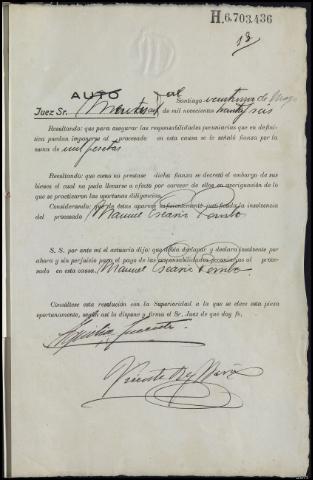 H.6.703.436
13
AUTO
Santiago veintiuno de Mayo
Juez Sr. de mil novecientos treinta y seis
Resultando: que para asegurar las responsabilidades pecuniarias que en defini-
tiva puedan imponerse al procesado en esta causa se le señaló fianza por la
suma de mil pesetas
Resultando: que como no prestase dicha fianza se decretó el embargo de sus
bienes el cual no pudo llevarse a efecto por carecer de ellos en averiguación de lo
que se practicaron las oportunas diligencias.
Considerando: que de éstas aparece suficientemente justificada la insolvencia
del procesado Manuel Pombo
S. S. por ante mi el actuario dijo: que debía declarar y declara insolvente por
ahora y sin perjuicio para el pago de las responsabilidades pecuniarias al proce-
sado en esta causa Manuel Pombo
Consúltese esta resolución con la Superioridad a la que se eleve esta pieza
oportunamente, según así lo dispone y firma el Sr. Juez de que doy fe.
Vicente Rey